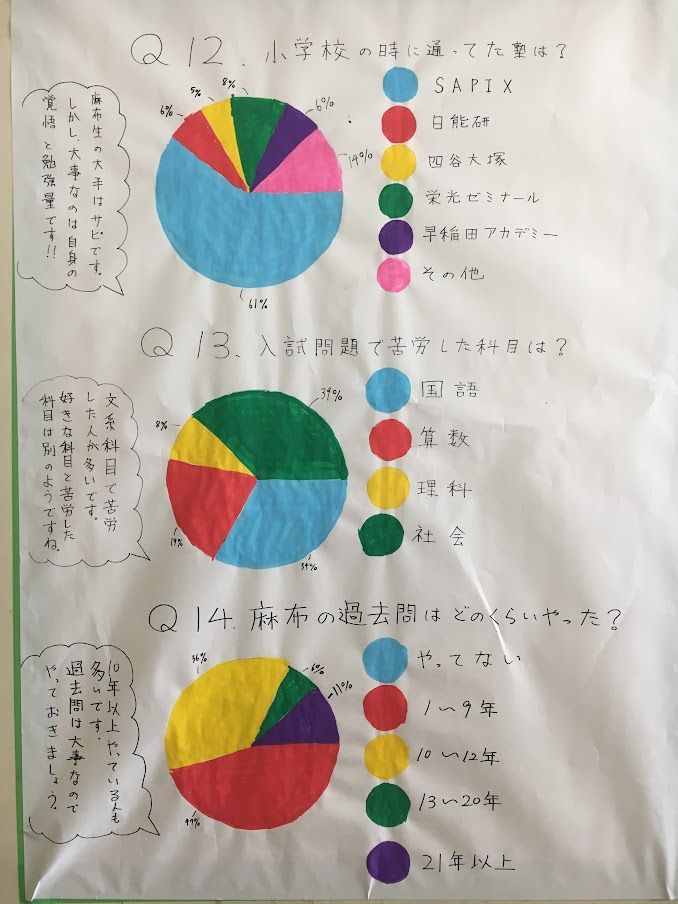 Q12. 小学校の時に通ってた塾は?
麻布生の大半はサピです。
しかし、大事なのは自身の
覚悟と勉強量です!!
6%
5%
8%
6%
14%
61%
SAPIX
日能研
四谷大塚
栄光ゼミナール
早稲田アカデミー
その他
Q13. 入試問題で苦労した科目は?
文系科目で苦労
した人が多いです。
好きな科目と苦労した
科目は別のようですね。
8%
39%
19%
34%
国語
算数
理科
社会
Q14. 麻布の過去問はどのくらいやった?
10年以上やっている人も
多いです。
過去問は大事なので
やっておきましょう。
36%
6%
11%
47%
やってない
1〜9年
10〜12年
13〜20年
21年以上